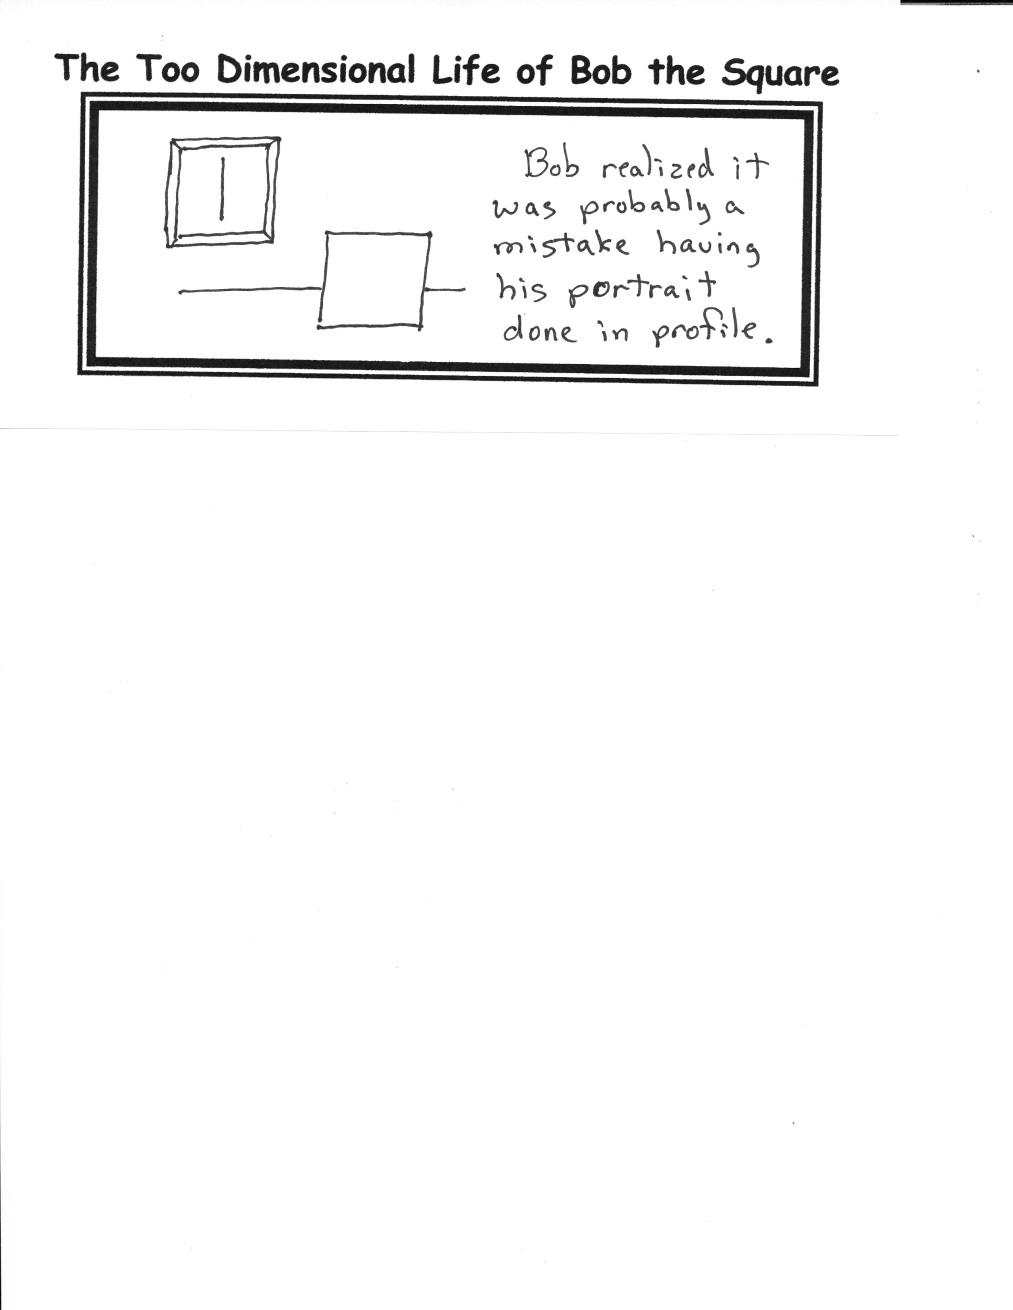 The Too Dimensional Life of Bob the Square
Bob realized it
was probably a
mistake having
his portrait
done in profile.